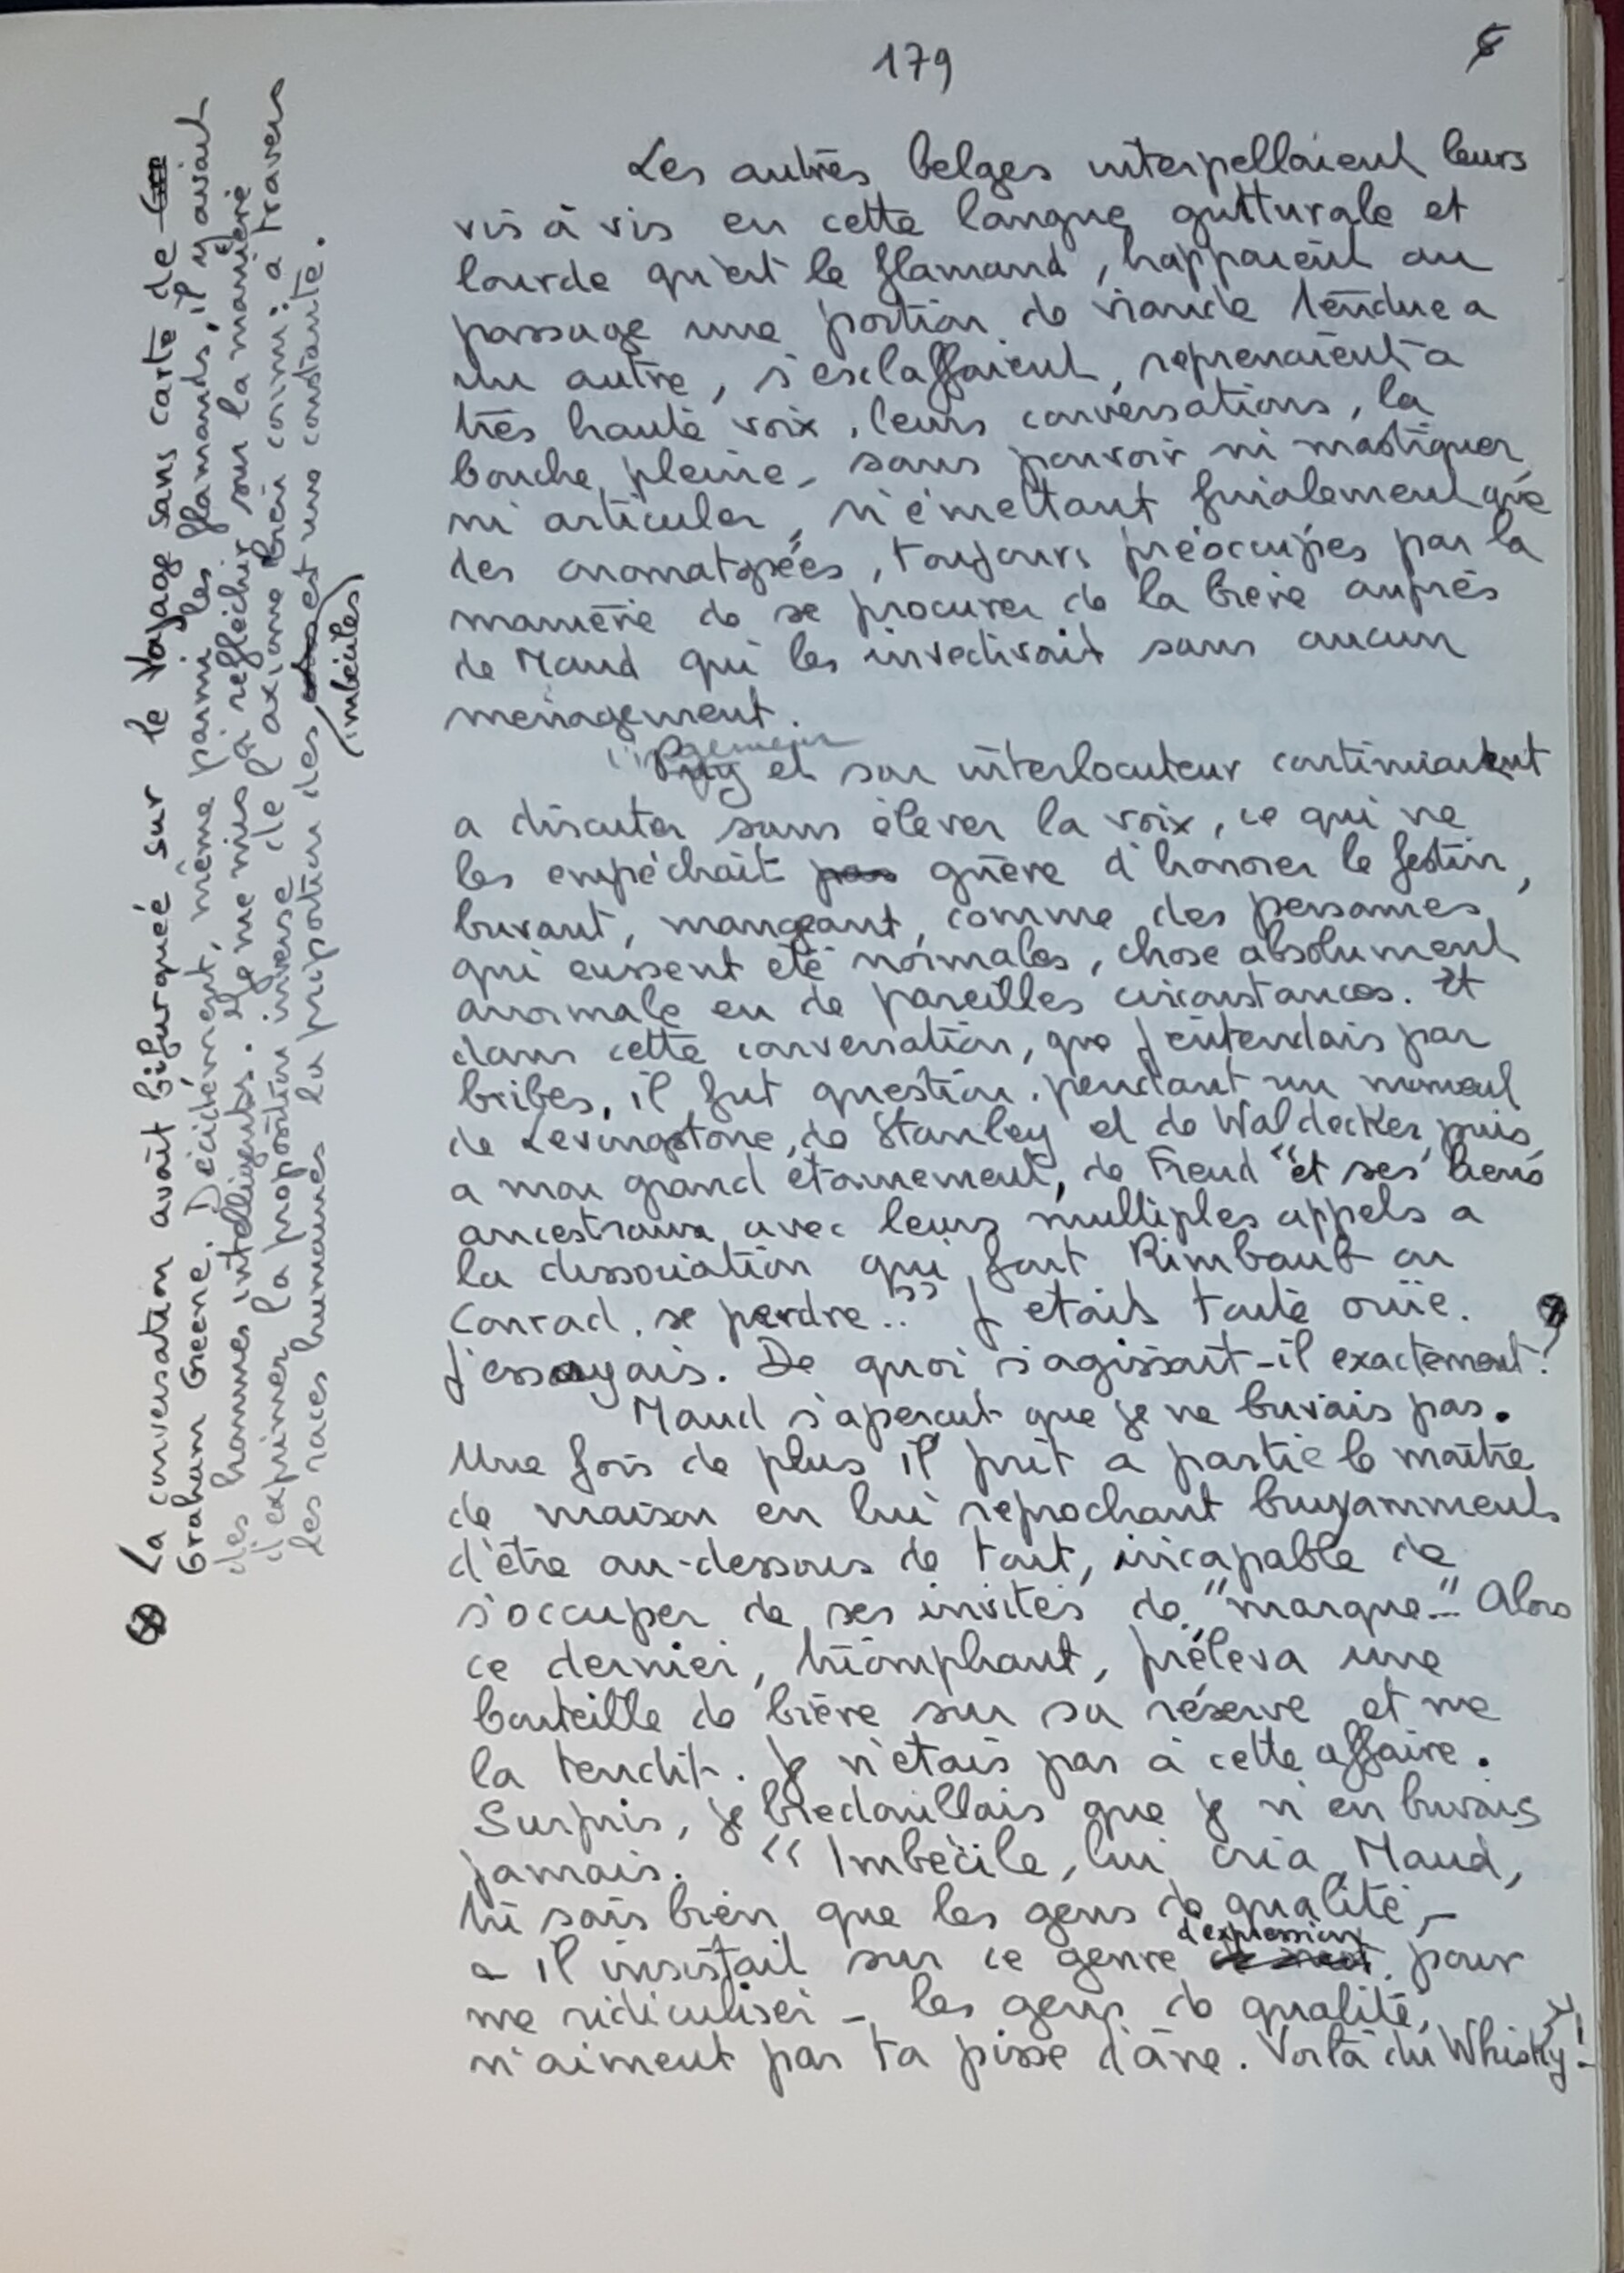 179
Les autres belges interpellaient leurs
vis à vis en cette langue gutturale et
lourde qu'est le flamand, happaient au
passage une portion de viande tendue a
un autre, s'esclaffaient, reprenaient a
très haute voix, leurs conversations, la
bouche pleine, sans pouvoir ni mastiquer,
ni articuler, n'émettant finalement que
des onomatopées, toujours préoccupés par la
manière de se procurer de la bière auprès
de Maud qui les invectivait sans aucun
ménagement.
l'ingénieur
et son interlocuteur continuaient
a discuter sans élever la voix, ce qui ne
les empéchait pas guère d'honorer le festin,
buvant, mangeant, comme des personnes
qui eussent été normales, chose absolument
anormale en de pareilles circonstances. Et
dans cette conversation, que j'entendais par
bribes, il fut question, pendant un moment
de Levingstone, de Stanley et de Waldecker, puis,
a mon grand étonnement, de Freud "et ses liens
ancestraux avec leurs multiples appels a
la dissociation qui font Rimbault ou
Conrad, se perdre.." J'étais toute ouïe.
j'essayais. De quoi s'agissait-il exactement?
Maud s'aperçut que je ne buvais pas.
Une fois de plus il prit a partie le maître
de maison en lui reprochant bruyamment
d'être au-dessous de tout, incapable de
s'occuper de ses invités de "marque.." Alors
ce dernier, triomphant, préleva une
bouteille de bière sur sa réserve et me
la tendit. Je n'étais pas à cette affaire.
Surpris, je bredouillais que je n'en buvais
jamais. "Imbécile, lui cria Maud,
tu sais bien que les gens de qualité -
d'expression
- il insistait sur ce genre de mot pour
me ridiculiser - les gens de qualité,
n'aiment pas ta pisse d'âne. Voilà du Whisky!"
⊗ La conversation avait bifurquée sur le Voyage sans carte de Gre
Graham Greene. Décidément, même parmi les flamands, il y avait
des hommes intelligents. Je me mis à réfléchir sur la manière
d'exprimer la proposition inverse de l'axiome bien connu: a travers
les races humaines la proportion des est une constante.
(imbéciles)